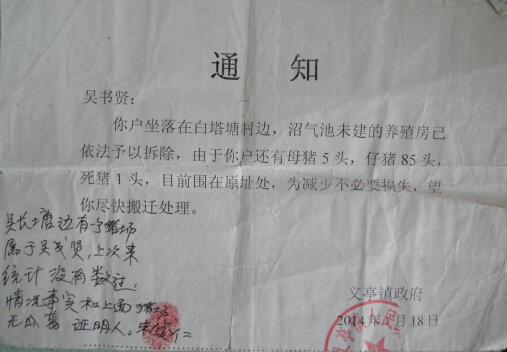 通 知
吴书贤:
你户坐落在白塔塘村边,沼气池未建的养殖房已
依法予以拆除,由于你户还有母猪5头,仔猪85头,
死猪1头,目前围在原址处,为减少不必要损失,望
你尽快搬迁处理。
吴长塘边有
属于吴 贤,上次来
统计没有数过,
情况事实和上面
无瓜葛 证明人:朱
义亭镇政府
2014年 月18日